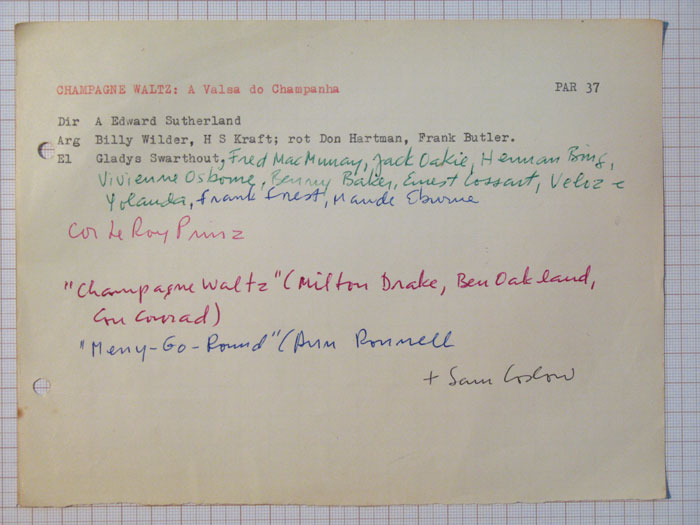 CHAMPAGNE WALTZ: A Valsa do Champanha PAR 37
Dir A Edward Sutherland
Arg Billy Wilder, H S Kraft; rot Don Hartman, Frank Butler.
El Gladys Swarthout, Fred MacMurray, Jack Oakie, Herman Bing,
Vivienne Osborne, Benny Baker, Ernest Cossart, Veloz e
Yolanda, Frank Forest, Maude Eburne
Cor Le Roy Prinz
"Champagne Waltz" (Milton Drake, Ben Oakland,
Con Conrad)
"Merry-Go-Round" (Ann Ronnell
+ Sam Coslow